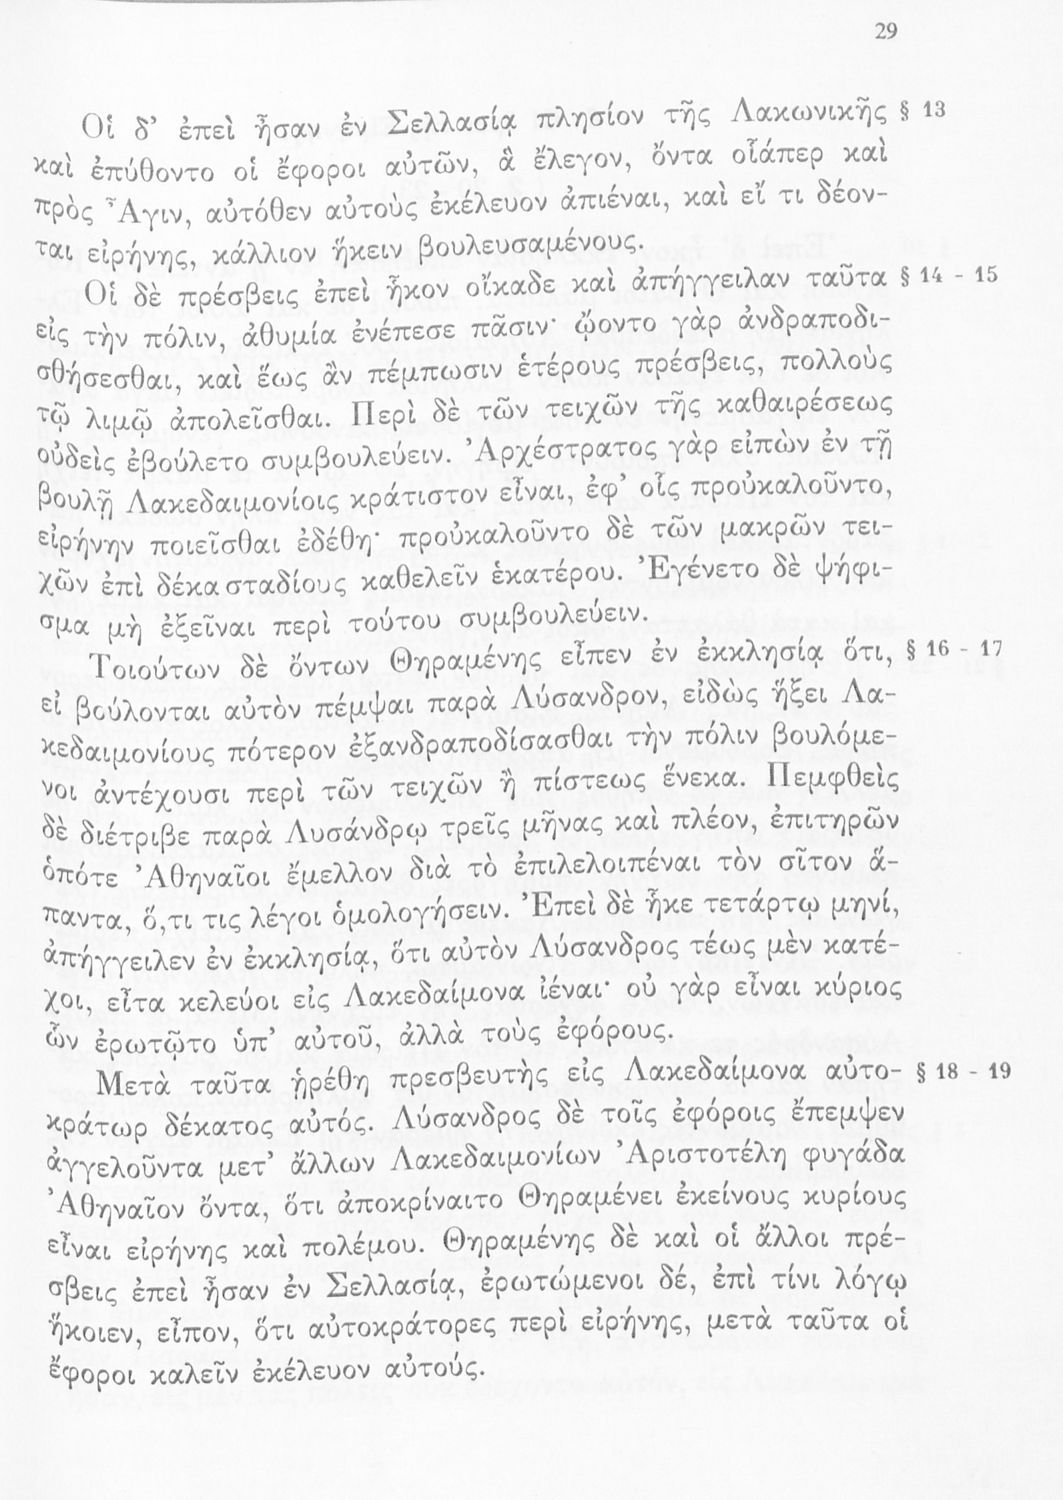 29
Οἱ δ’ ἐπεὶ ἦσαν ἐν Σελλασίᾳ πλησίον τῆς Λακωνικῆς § 13
καὶ ἐπύθοντο οἱ ἔφοροι αὐτῶν, ἃ ἔλεγον, ὄντα οἷάπερ καὶ
πρὸς Ἆγιν, αὐτόθεν αὐτοὺς ἐκέλευον ἀπιέναι, καὶ εἴ τι δέον-
ται εἰρήνης, κάλλιον ἥκειν βουλευσαμένους.
Οἱ δὲ πρέσβεις ἐπεὶ ἧκον οἴκαδε καὶ ἀπήγγειλαν ταῦτα § 14 - 15
εἰς τὴν πόλιν, ἀθυμία ἐνέπεσε πᾶσιν· ᾤοντο γὰρ ἀνδραποδι-
σθήσεσθαι, καὶ ἕως ἂν πέμπωσιν ἑτέρους πρέσβεις, πολλοὺς
τῷ λιμῷ ἀπολεῖσθαι. Περὶ δὲ τῶν τειχῶν τῆς καθαιρέσεως
οὐδεὶς ἐβούλετο συμβουλεύειν. Ἀρχέστρατος γὰρ εἰπὼν ἐν τῇ
βουλῇ Λακεδαιμονίοις κράτιστον εἶναι, ἐφ’ οἷς προὐκαλοῦντο,
εἰρήνην ποιεῖσθαι ἐδέθη· προὐκαλοῦντο δὲ τῶν μακρῶν τει-
χῶν ἐπὶ δέκα σταδίους καθελεῖν ἑκατέρου. Ἐγένετο δὲ ψήφι-
σμα μὴ ἐξεῖναι περὶ τούτου συμβουλεύειν.
Τοιούτων δὲ ὄντων Θηραμένης εἶπεν ἐν ἐκκλησίᾳ ὅτι, § 16 - 17
εἰ βούλονται αὐτὸν πέμψαι παρὰ Λύσανδρον, εἰδὼς ἥξει Λα-
κεδαιμονίους πότερον ἐξανδραποδίσασθαι τὴν πόλιν βουλόμε-
νοι ἀντέχουσι περὶ τῶν τειχῶν ἢ πίστεως ἕνεκα. Πεμφθεὶς
δὲ διέτριβε παρὰ Λυσάνδρῳ τρεῖς μῆνας καὶ πλέον, ἐπιτηρῶν
ὁπότε Ἀθηναῖοι ἔμελλον διὰ τὸ ἐπιλελοιπέναι τὸν σῖτον ἅ-
παντα, ὅ,τι τις λέγοι ὁμολογήσειν. Ἐπεὶ δὲ ἧκε τετάρτῳ μηνί,
ἀπήγγειλεν ἐν ἐκκλησίᾳ, ὅτι αὐτὸν Λύσανδρος τέως μὲν κατέ-
χοι, εἶτα κελεύοι εἰς Λακεδαίμονα ἰέναι· οὐ γὰρ εἶναι κύριος
ὧν ἐρωτῷτο ὑπ’ αὐτοῦ, ἀλλὰ τοὺς ἐφόρους.
Μετὰ ταῦτα ᾑρέθη πρεσβευτὴς εἰς Λακεδαίμονα αὐτο- § 18 - 19
κράτωρ δέκατος αὐτός. Λύσανδρος δὲ τοῖς ἐφόροις ἔπεμψεν
ἀγγελοῦντα μετ’ ἄλλων Λακεδαιμονίων Ἀριστοτέλη φυγάδα
Ἀθηναῖον ὄντα, ὅτι ἀποκρίναιτο Θηραμένει ἐκείνους κυρίους
εἶναι εἰρήνης καὶ πολέμου. Θηραμένης δὲ καὶ οἱ ἄλλοι πρέ-
σβεις ἐπεὶ ἦσαν ἐν Σελλασίᾳ, ἐρωτώμενοι δέ, ἐπὶ τίνι λόγῳ
ἥκοιεν, εἶπον, ὅτι αὐτοκράτορες περὶ εἰρήνης, μετὰ ταῦτα οἱ
ἔφοροι καλεῖν ἐκέλευον αὐτούς.